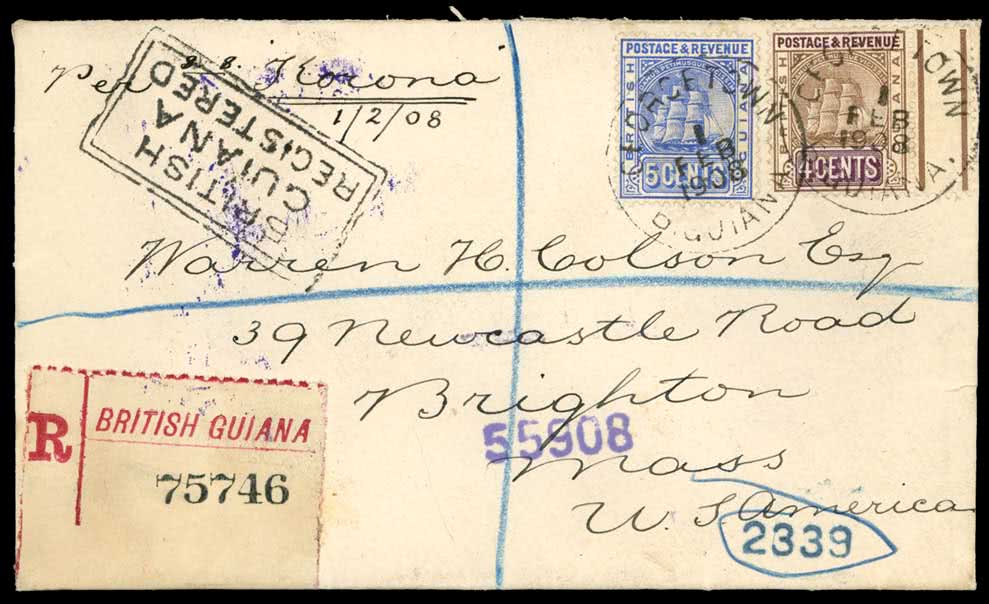 Per s.s. Korona
1/2/08
BRITISH
GUIANA
REGISTERED
POSTAGE & REVENUE
BRITISH
GUIANA
5 CENTS
POSTAGE & REVENUE
BRITISH
GUIANA
4 CENTS
GEORGETOWN
1
FEB
1908
B. GUIANA
GEORGETOWN
1
FEB
1908
B. GUIANA.
Warren H. Colson Esq
39 Newcastle Road
Brighton
55908
Mass
U. S. America
2339
R
BRITISH GUIANA
75746